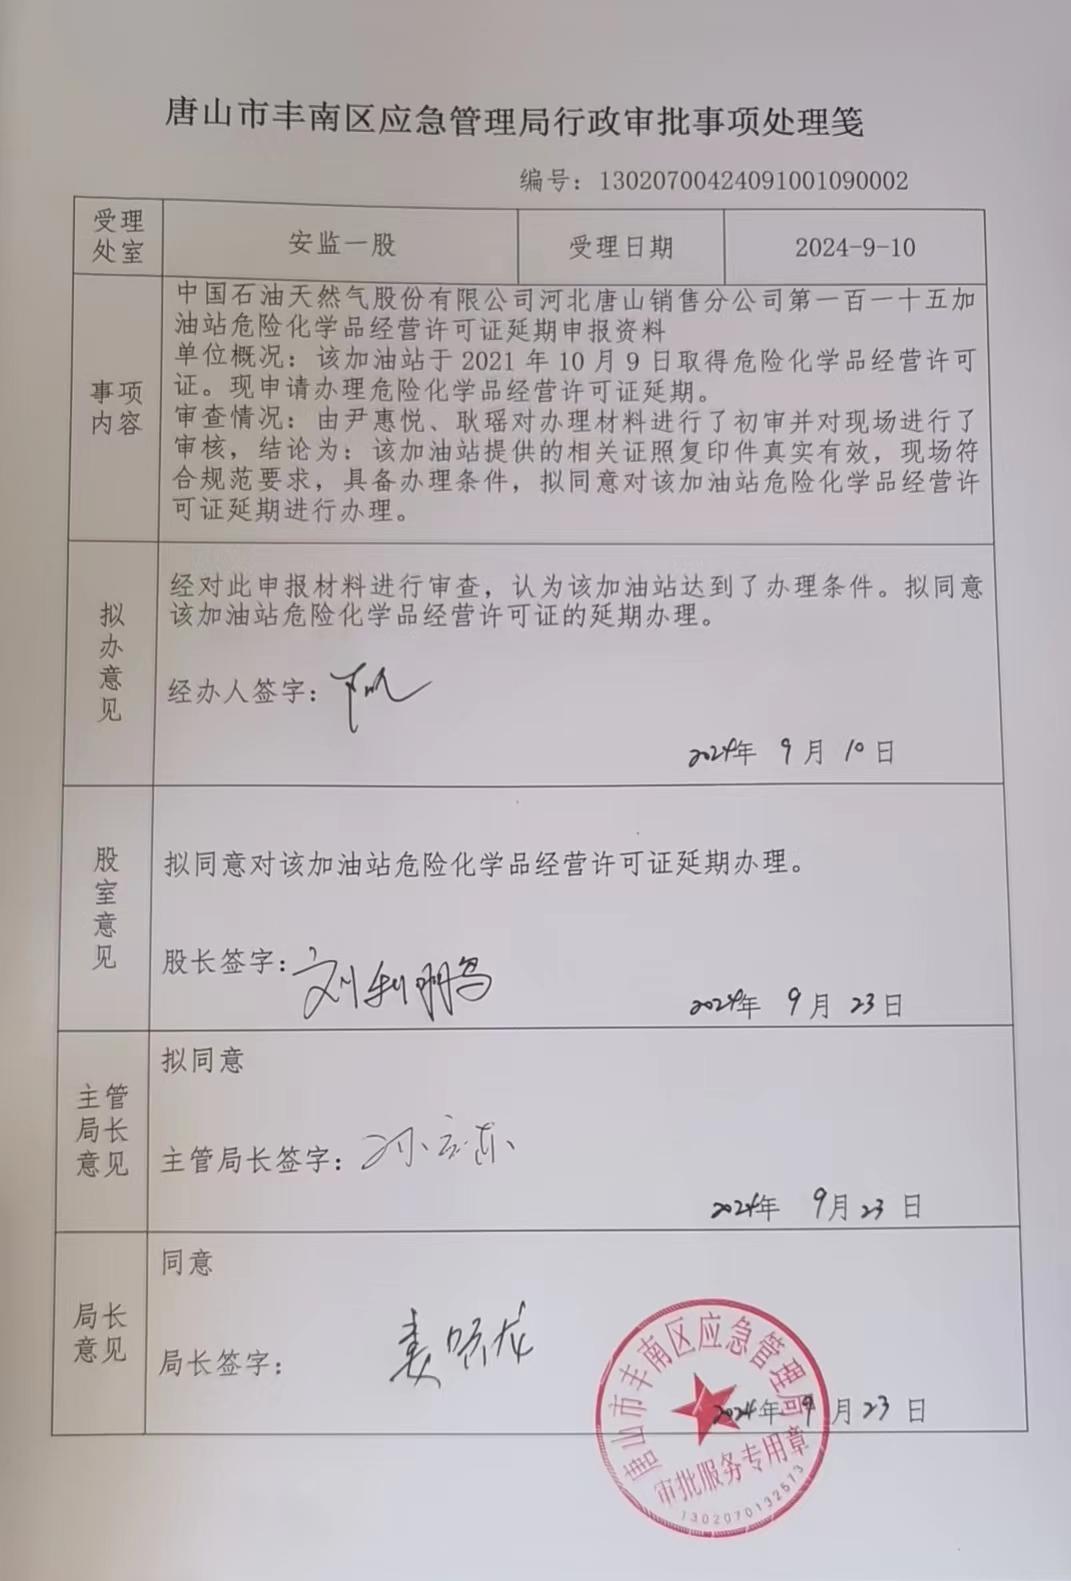 唐山市丰南区应急管理局行政审批事项处理笺
编号：13020700424091001090002
受理处室
安监一股
受理日期
2024-9-10
事项内容
中国石油天然气股份有限公司河北唐山销售分公司第一百一十五加
油站危险化学品经营许可证延期申报资料
单位概况：该加油站于 2021 年 10 月 9 日取得危险化学品经营许可
证。现申请办理危险化学品经营许可证延期。
审查情况：由尹惠悦、耿瑶对办理材料进行了初审并对现场进行了
审核，结论为：该加油站提供的相关证照复印件真实有效，现场符
合规范要求，具备办理条件，拟同意对该加油站危险化学品经营许
可证延期进行办理。
拟办意见
经对此申报材料进行审查，认为该加油站达到了办理条件。拟同意
该加油站危险化学品经营许可证的延期办理。
经办人签字：
2024年 9月 10日
股室意见
拟同意对该加油站危险化学品经营许可证延期办理。
股长签字：刘利鹏
2024年 9月 23日
主管局长意见
拟同意
主管局长签字：
2024年 9月 23日
局长意见
同意
局长签字：
2024年 9月 23日
唐山市丰南区应急管理局
审批服务专用章
1302070132573